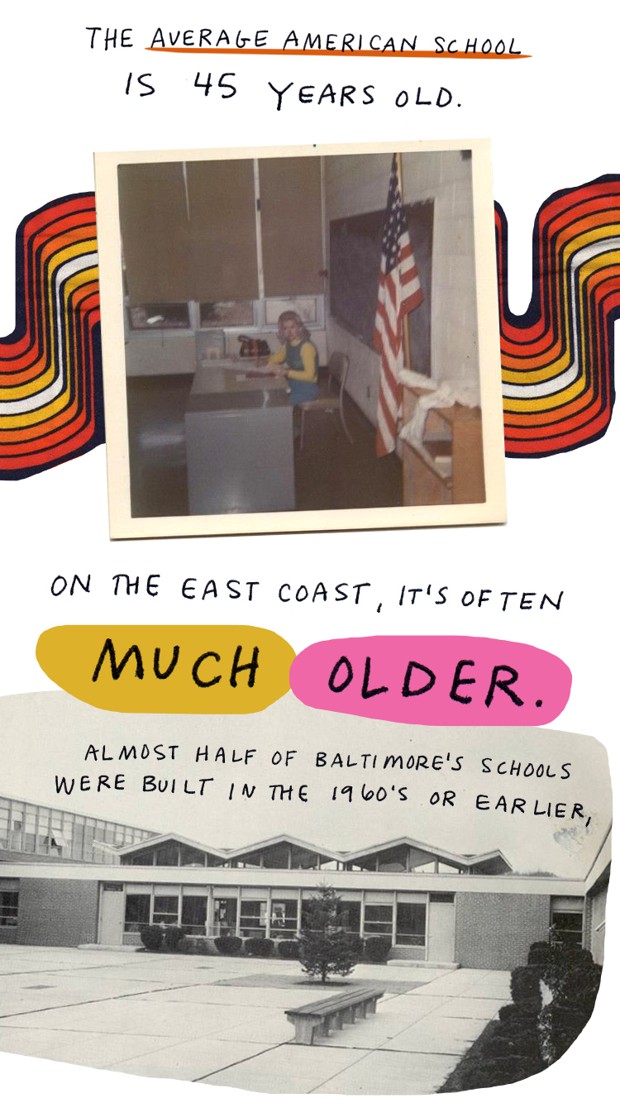 THE AVERAGE AMERICAN SCHOOL
IS 45 YEARS OLD.
ON THE EAST COAST, IT'S OFTEN
MUCH OLDER.
ALMOST HALF OF BALTIMORE'S SCHOOLS
WERE BUILT IN THE 1960'S OR EARLIER,